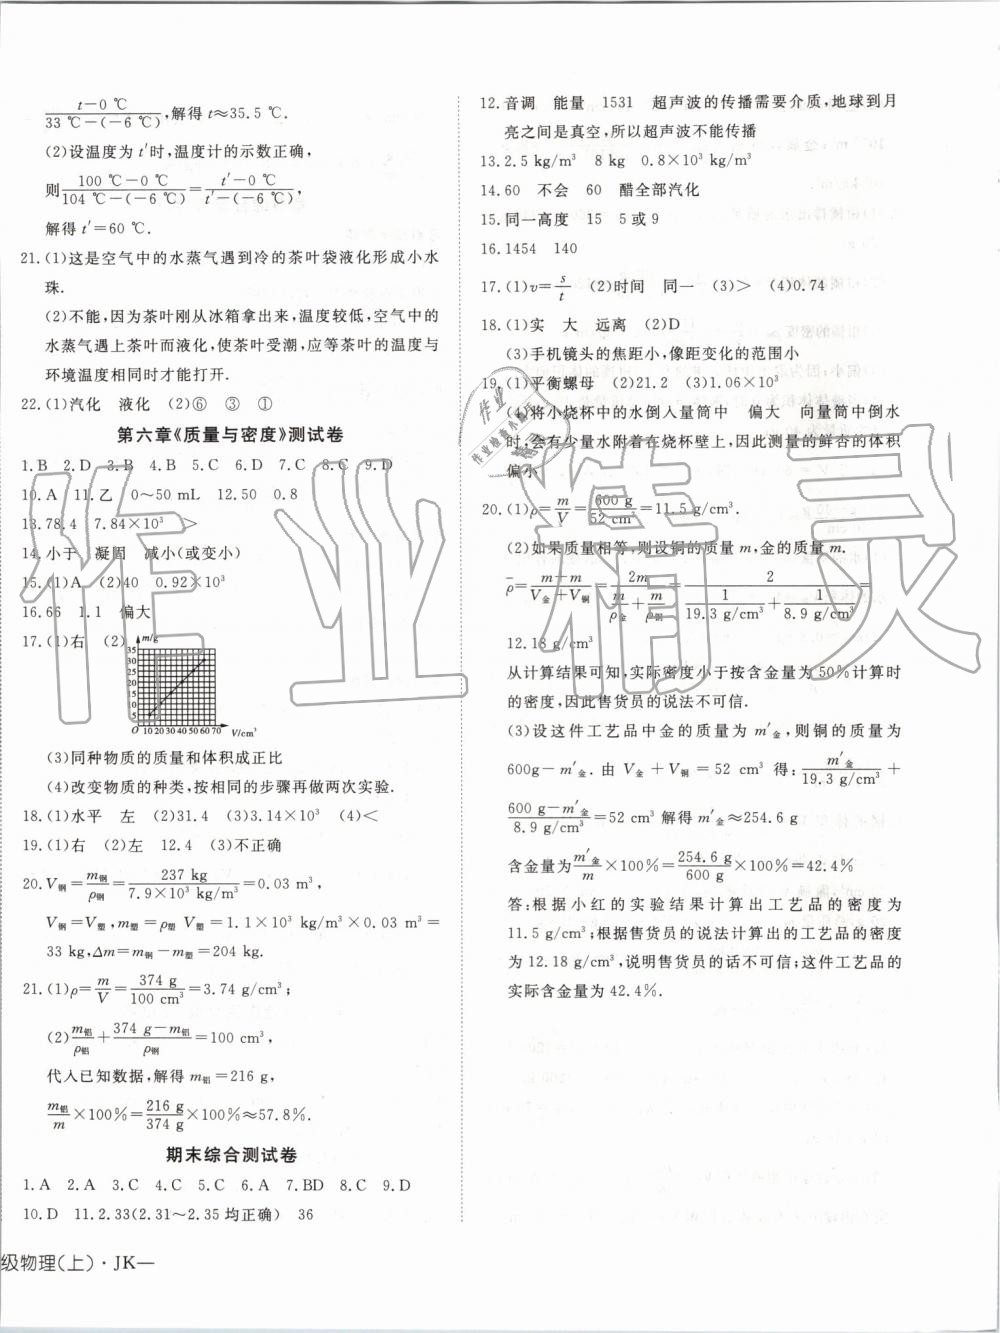 t-0 ℃/33 ℃-(-6 ℃),解得 t≈35.5 ℃.
(2)设温度为 t′时,温度计的示数正确,
则 100 ℃-0 ℃/104 ℃-(-6 ℃)=t′-0 ℃/t′-(-6 ℃),
解得 t′=60 ℃.
21.(1)这是空气中的水蒸气遇到冷的茶叶袋液化形成小水
珠.
(2)不能,因为茶叶刚从冰箱拿出来,温度较低,空气中的
水蒸气遇上茶叶而液化,使茶叶受潮,应等茶叶的温度与
环境温度相同时才能打开.
22.(1)汽化 液化 (2)⑥ ③ ①
第六章《质量与密度》测试卷
1.B 2.D 3.B 4.B 5.C 6.D 7.C 8.C 9.D
10.A 11.乙 0～50 mL 12.50 0.8
13.78.4 7.84×10³ >
14.小于 凝固 减小(或变小)
15.(1)A (2)40 0.92×10³
16.66 1.1 偏大
17.(1)右 (2)
m/g
35
30
25
20
15
10
5
O 10 20 30 40 50 60 70 V/cm³
(3)同种物质的质量和体积成正比
(4)改变物质的种类,按相同的步骤再做两次实验.
18.(1)水平 左 (2)31.4 (3)3.14×10³ (4)<
19.(1)右 (2)左 12.4 (3)不正确
20.V钢=m钢/ρ钢=237 kg/7.9×10³ kg/m³=0.03 m³,
V钢=V塑,m塑=ρ塑 V塑=1.1×10³ kg/m³×0.03 m³=
33 kg,Δm=m钢-m塑=204 kg.
21.(1)ρ=m/V=374 g/100 cm³=3.74 g/cm³;
(2)m铝/ρ铝+374 g-m铝/ρ钢=100 cm³,
代入已知数据,解得 m铝=216 g,
m铝/m×100%=216 g/374 g×100%≈57.8%.
期末综合测试卷
1.A 2.A 3.C 4.C 5.C 6.A 7.BD 8.C 9.D
10.D 11.2.33(2.31～2.35 均正确) 36
级物理(上)·JK—
12.音调 能量 1531 超声波的传播需要介质,地球到月
亮之间是真空,所以超声波不能传播
13.2.5 kg/m³ 8 kg 0.8×10³ kg/m³
14.60 不会 60 醋全部汽化
15.同一高度 15 5 或 9
16.1454 140
17.(1)v=s/t (2)时间 同一 (3)> (4)0.74
18.(1)实 大 远离 (2)D
(3)手机镜头的焦距小,像距变化的范围小
19.(1)平衡螺母 (2)21.2 (3)1.06×10³
(4)将小烧杯中的水倒入量筒中 偏大 向量筒中倒水
时,会有少量水附着在烧杯壁上,因此测量的鲜古的体积
偏小
20.(1)ρ=m/V=600 g/52 cm³=11.5 g/cm³.
(2)如果质量相等,则设铜的质量 m,金的质量 m.
ρ̄=m+m/V金+V铜=2m/(m/ρ金+m/ρ铝)=2/(1/19.3 g/cm³+1/8.9 g/cm³)=
12.18 g/cm³
从计算结果可知,实际密度小于按含金量为 50%计算时
的密度,因此售货员的说法不可信.
(3)设这件工艺品中金的质量为 m′金,则铜的质量为
600g-m′金.由 V金+V铜=52 cm³ 得:m′金/19.3 g/cm³+
600 g-m′金/8.9 g/cm³=52 cm³ 解得 m′金≈254.6 g
含金量为m′金/m×100%=254.6 g/600 g×100%=42.4%
答:根据小红的实验结果计算出工艺品的密度为
11.5 g/cm³;根据售货员的说法计算出的工艺品的密度
为 12.18 g/cm³,说明售货员的话不可信;这件工艺品的
实际含金量为 42.4%.
作业精灵